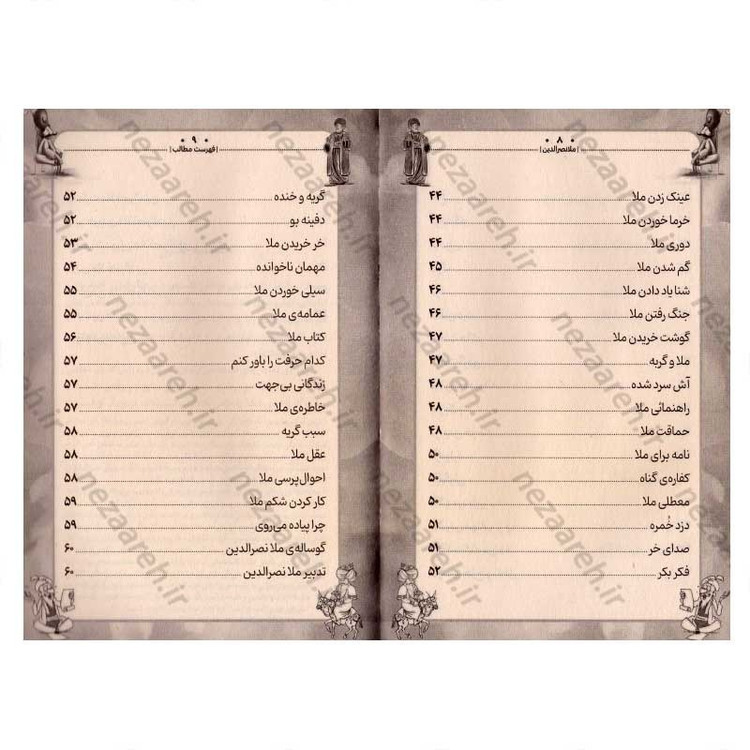 ۸۰
|ملانصرالدین|
عینک زدن ملا ۴۴
خرما خوردن ملا ۴۴
دوری ملا ۴۴
گم شدن ملا ۴۵
شنا یاد دادن ملا ۴۶
جنگ رفتن ملا ۴۶
گوشت خریدن ملا ۴۷
ملا و گربه ۴۷
آش سرد شده ۴۸
راهنمائی ملا ۴۸
حماقت ملا ۴۸
نامه برای ملا ۵۰
کفاره‌ی گناه ۵۰
معطلی ملا ۵۰
دزد خُمره ۵۱
صدای خر ۵۱
فکر بکر ۵۲
۰ ۹ ۰
|فهرست مطالب|
گریه و خنده ۵۲
دفینه بو ۵۲
خر خریدن ملا ۵۳
مهمان ناخوانده ۵۴
سیلی خوردن ملا ۵۵
عمامه‌ی ملا ۵۵
کتاب ملا ۵۶
کدام حرفت را باور کنم ۵۷
زندگانی بی‌جهت ۵۷
خاطره‌ی ملا ۵۷
سبب گریه ۵۸
عقل ملا ۵۸
احوال‌پرسی ملا ۵۸
کار کردن شکم ملا ۵۹
چرا پیاده می‌روی ۵۹
گوساله‌ی ملا نصرالدین ۶۰
تدبیر ملا نصرالدین ۶۰
nezaareh.ir